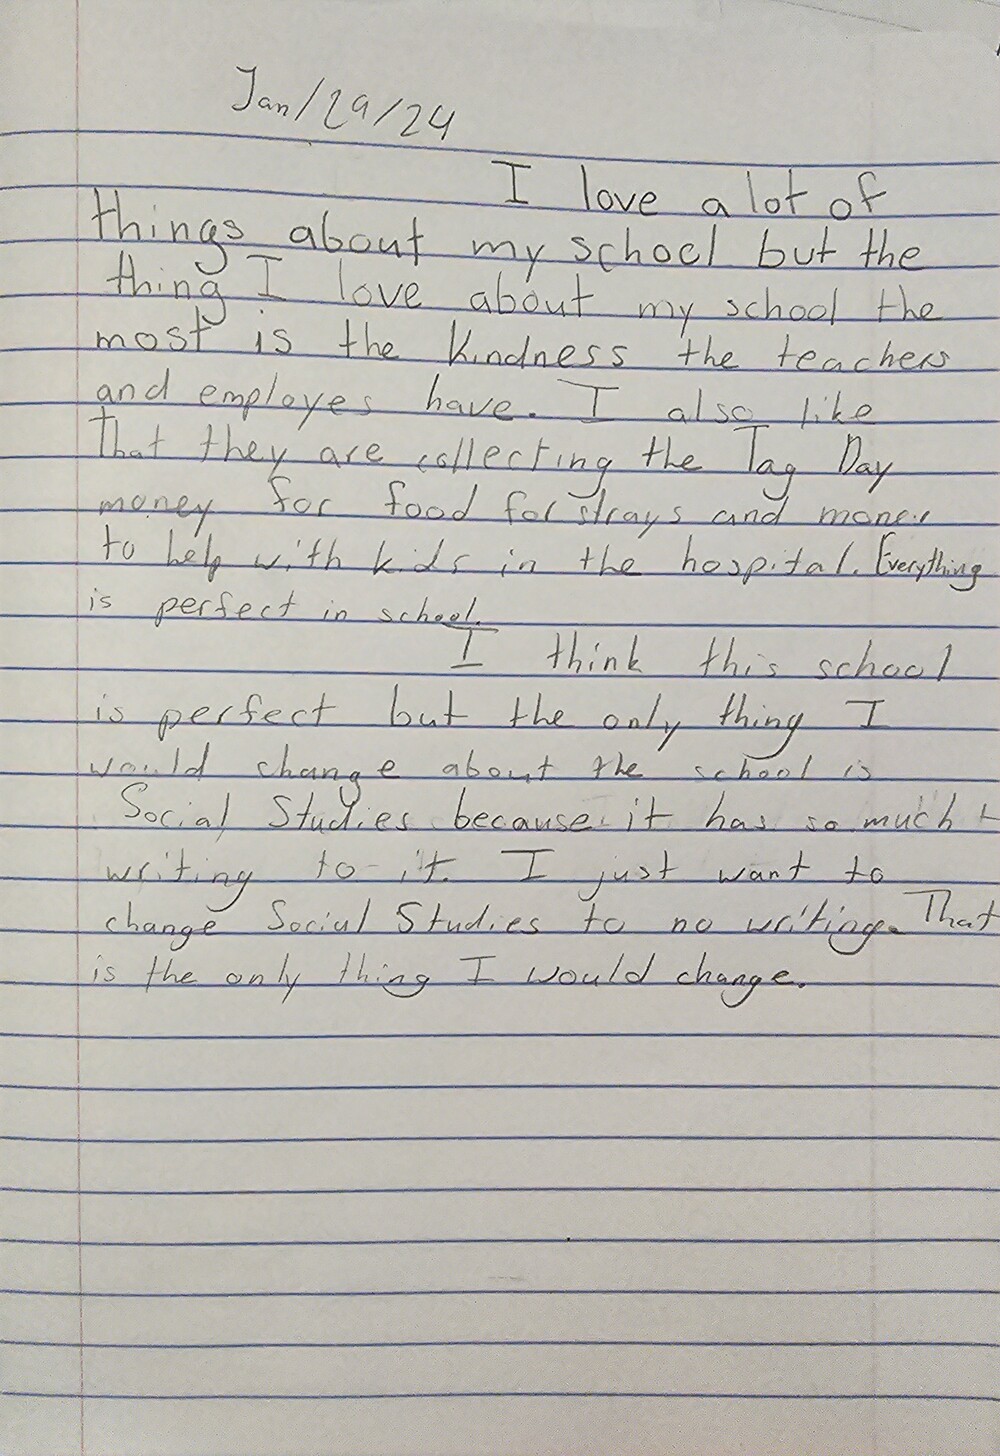 Jan/29/24
I love a lot of
things about my school but the
thing I love about my school the
most is the kindness the teachers
and employes have. I also like
That they are collecting the Tag Day
money for food for strays and money
to help with kids in the hospital. Everything
is perfect in school.
I think this school
is perfect but the only thing I
would change about the school is
Social Studies because it has so much
writing to it. I just want to
change Social Studies to no writing. That
is the only thing I would change.